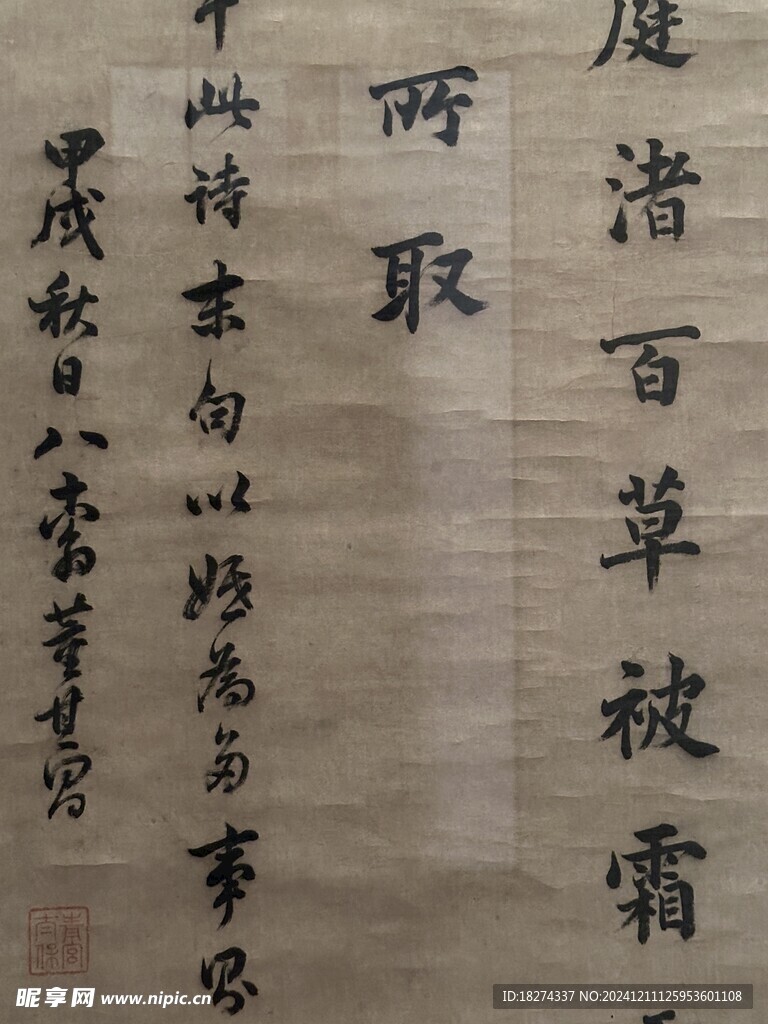 庭渚百草被霜
所取
此詩末句以為多事
甲戌秋日八十翁董其昌
青宮太保
昵享网 www.nipic.cn
ID:18274337 NO:20241211125953601108